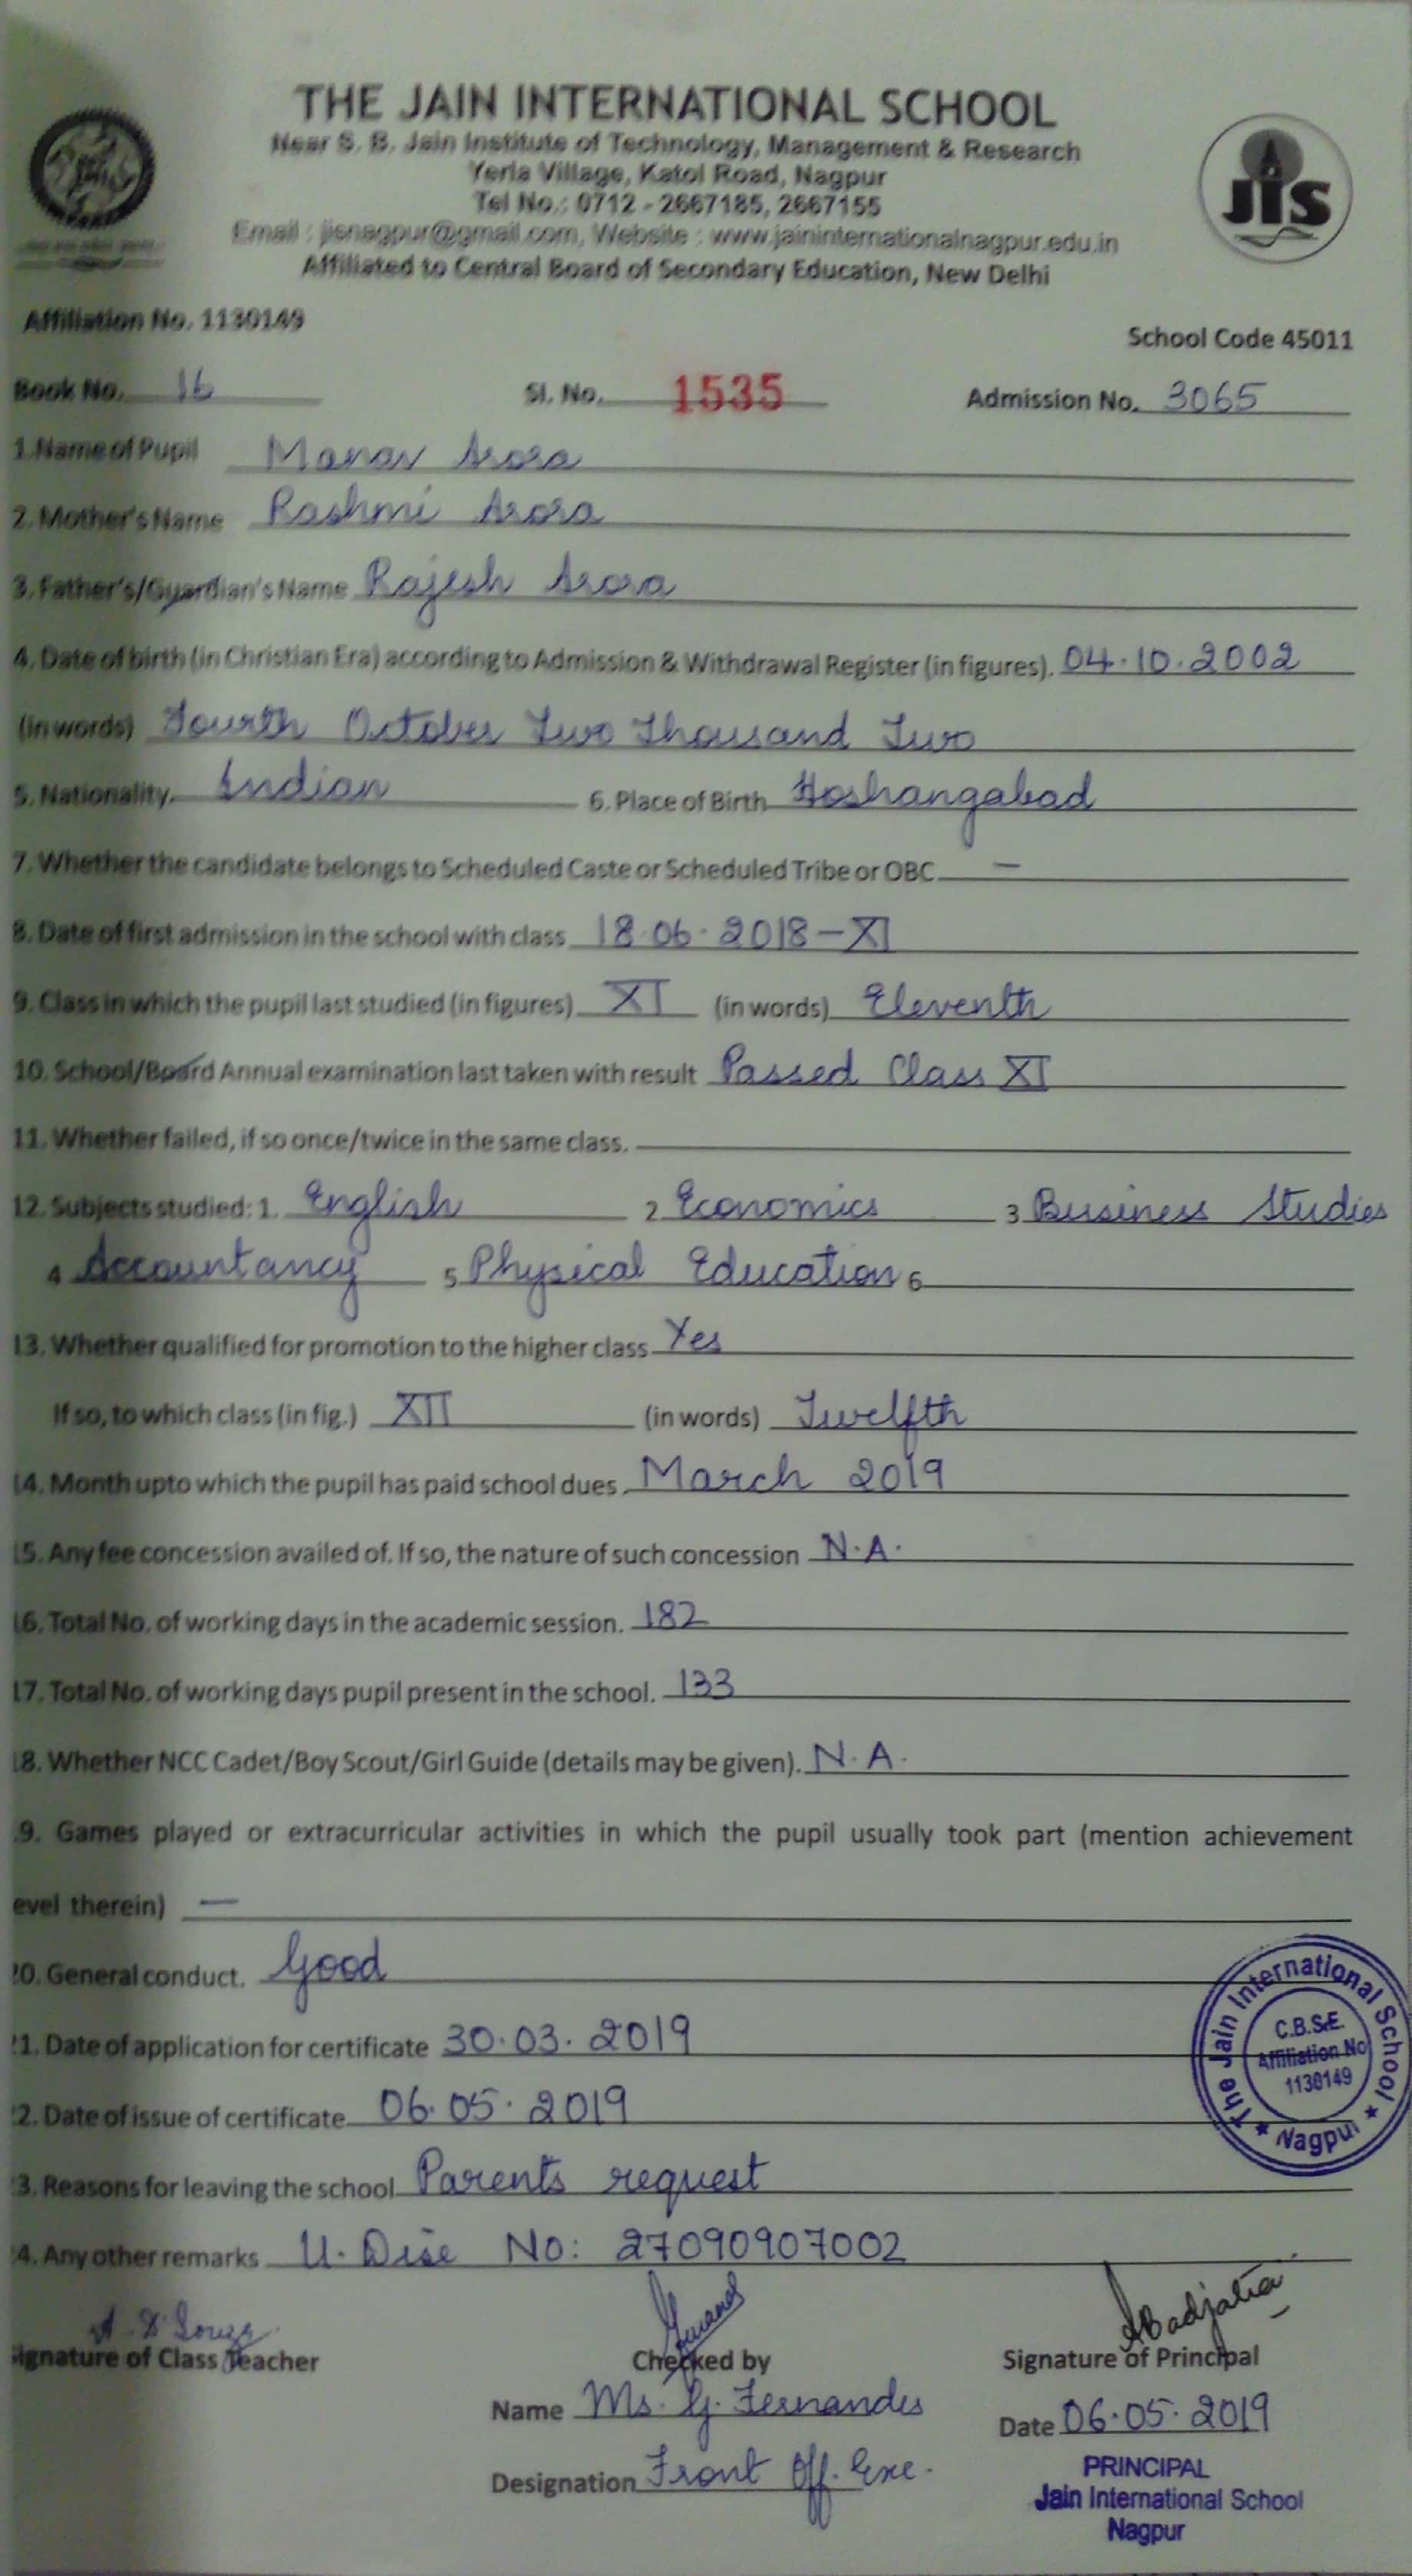 THE JAIN INTERNATIONAL SCHOOL
Near S. B. Jain Institute of Technology, Management & Research
Yerla Village, Katol Road, Nagpur
Tel No.: 0712 - 2667185, 2667155
Email : jisnagpur@gmail.com, Website : www.jaininternationalnagpur.edu.in
Affiliated to Central Board of Secondary Education, New Delhi
JIS
Affiliation No. 1130149
School Code 45011
Book No. 16 Sl. No. 1535 Admission No. 3065
1. Name of Pupil Manav Arora
2. Mother's Name Rashmi Arora
3. Father's/Guardian's Name Rajesh Arora
4. Date of birth (in Christian Era) according to Admission & Withdrawal Register (in figures). 04.10.2002
(in words) Fourth October Two Thousand Two
5. Nationality Indian 6. Place of Birth Hoshangabad
7. Whether the candidate belongs to Scheduled Caste or Scheduled Tribe or OBC —
8. Date of first admission in the school with class 18.06.2018 – XI
9. Class in which the pupil last studied (in figures) XI (in words) Eleventh
10. School/Board Annual examination last taken with result Passed Class XI
11. Whether failed, if so once/twice in the same class.
12. Subjects studied: 1. English 2 Economics 3 Business Studies
4 Accountancy 5 Physical Education 6
13. Whether qualified for promotion to the higher class Yes
If so, to which class (in fig.) XII (in words) Twelfth
14. Month upto which the pupil has paid school dues. March 2019
15. Any fee concession availed of. If so, the nature of such concession N.A.
16. Total No. of working days in the academic session. 182
17. Total No. of working days pupil present in the school. 133
18. Whether NCC Cadet/Boy Scout/Girl Guide (details may be given). N.A.
9. Games played or extracurricular activities in which the pupil usually took part (mention achievement
evel therein) —
20. General conduct. Good
21. Date of application for certificate 30.03.2019
22. Date of issue of certificate 06.05.2019
23. Reasons for leaving the school Parents request
24. Any other remarks U. Dise No: 27090907002
The Jain International School ★ Nagpur ★
C.B.S.E.
Affiliation No
1130149
A. D'Souza
Signature of Class Teacher Checked by Signature of Principal
Name Ms. G. Fernandes
Date 06.05.2019
Designation Front Off. Exe.
PRINCIPAL
Jain International School
Nagpur